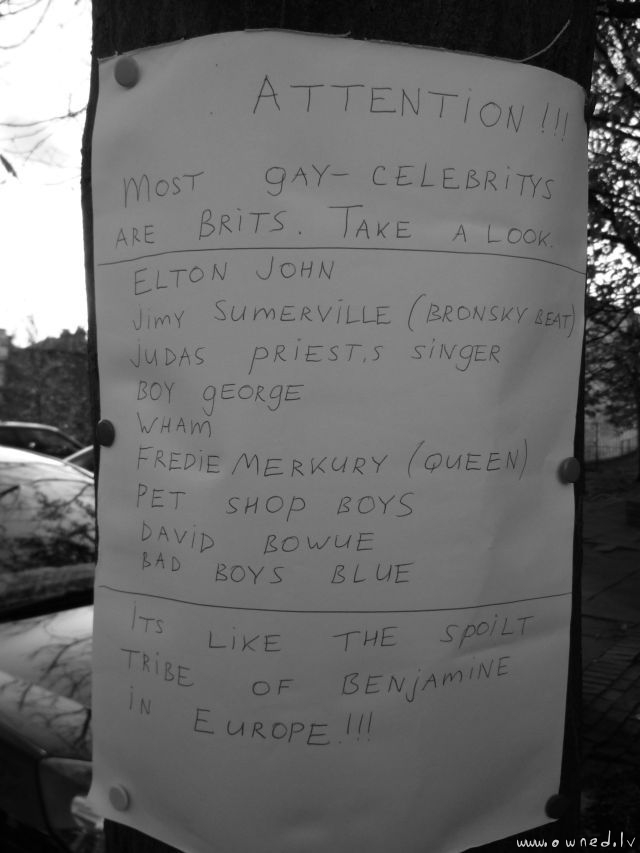 ATTENTION !!!
MOST GAY- CELEBRITYS
ARE BRITS. TAKE A LOOK.
ELTON JOHN
JIMY SUMERVILLE (BRONSKY BEAT)
JUDAS PRIEST,S SINGER
BOY GEORGE
WHAM
FREDIE MERKURY (QUEEN)
PET SHOP BOYS
DAVID BOWUE
BAD BOYS BLUE
ITS LIKE THE SPOILT
TRIBE OF BENJAMINE
IN EUROPE!!!
www.owned.lv